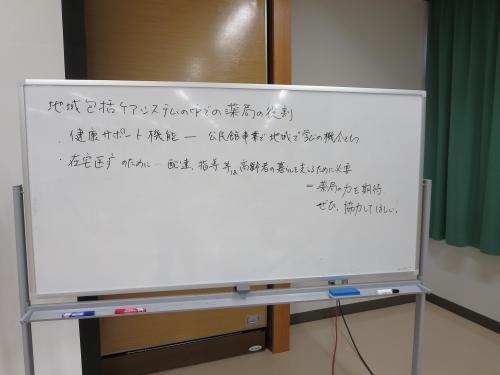 地域包括ケアシステムの中での薬局の役割
・健康サポート機能 ー 公民館事業で地域で学びの機会をもつ
・在宅医疗のために ー 配達、指導等は高齢者の暮らしを支えるために必要
ー薬局の力を期待
ぜひ、協力してほしい。